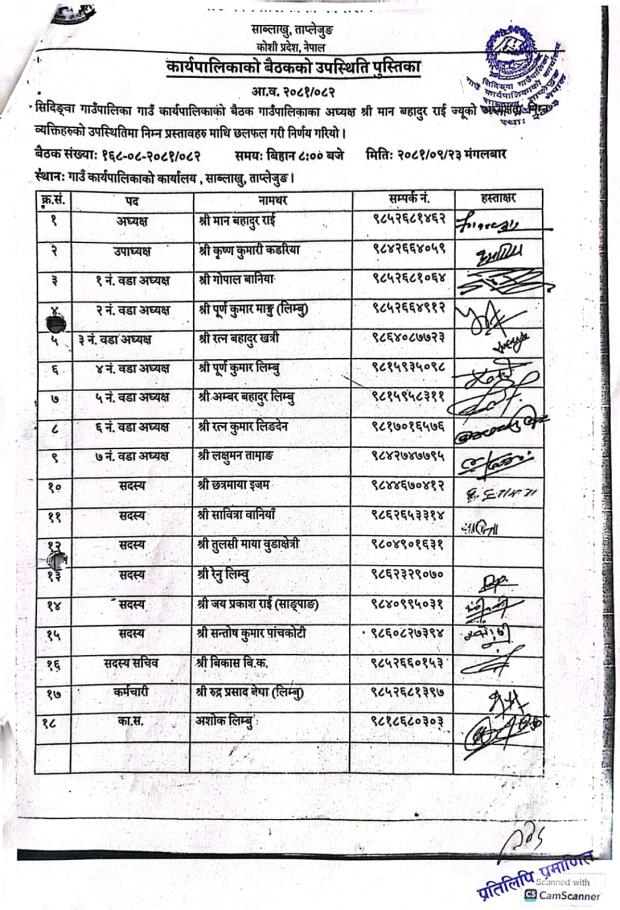 साब्लाखु, ताप्लेजुङ
कोशी प्रदेश, नेपाल
कार्यपालिकाको बैठकको उपस्थिति पुस्तिका
आ.व. २०८१/०८२
सिदिङ्वा गाउँपालिका गाउँ कार्यपालिकाको बैठक गाउँपालिकाका अध्यक्ष श्री मान बहादुर राई ज्यूको अध्यक्षतामा निम्न
व्यक्तिहरुको उपस्थितिमा निम्न प्रस्तावहरु माथि छलफल गरी निर्णय गरियो।
बैठक संख्याः १६८-०८-२०८१/०८२ समयः बिहान ८:०० बजे मितिः २०८१/०९/२३ मंगलबार
स्थानः गाउँ कार्यपालिकाको कार्यालय , साब्लाखु, ताप्लेजुङ।
क्र.सं. पद नामथर सम्पर्क नं. हस्ताक्षर
१ अध्यक्ष श्री मान बहादुर राई ९८५२६८१४६२
२ उपाध्यक्ष श्री कृष्ण कुमारी कडरिया ९८४२६६४०५९
३ १ नं. वडा अध्यक्ष श्री गोपाल बानिया ९८५२६८१०६४
४ २ नं. वडा अध्यक्ष श्री पूर्ण कुमार (लिम्बु) ९८५२६६४९१२
५ ३ नं. वडा अध्यक्ष श्री रत्न बहादुर खत्री ९८६४०८७७२३
६ ४ नं. वडा अध्यक्ष श्री पूर्ण कुमार लिम्बु ९८१५९३५०९८
७ ५ नं. वडा अध्यक्ष श्री अम्बर बहादुर लिम्बु ९८१५९५८३११
८ ६ नं. वडा अध्यक्ष श्री रत्न कुमार लिङदेन ९८१७०१६५७६
९ ७ नं. वडा अध्यक्ष श्री लक्षुमन तामाङ ९८४२७४७७९५
१० सदस्य श्री छत्रमाया इजम ९८४४६७०४१२
११ सदस्य श्री सावित्रा वानियाँ ९८६२६५३३१४
१२ सदस्य श्री तुलसी माया वुडाक्षेत्री ९८०४९०१६३१
१३ सदस्य श्री रेनु लिम्बु ९८६२३२९०७०
१४ सदस्य श्री जय प्रकाश राई (साङ्पाङ) ९८४०९९५०३१
१५ सदस्य श्री सन्तोष कुमार पांचकोटी ९८६०८२७३९४
१६ सदस्य सचिव श्री बिकास बि.क. ९८५२६६०१५३
१७ कर्मचारी श्री रुद्र प्रसाद नेघा (लिम्बु) ९८५२६८१३९७
१८ का.स. अशोक लिम्बु ९८१८६८०३०३
प्रतिलिपि प्रमाणित
Scanned with
CamScanner